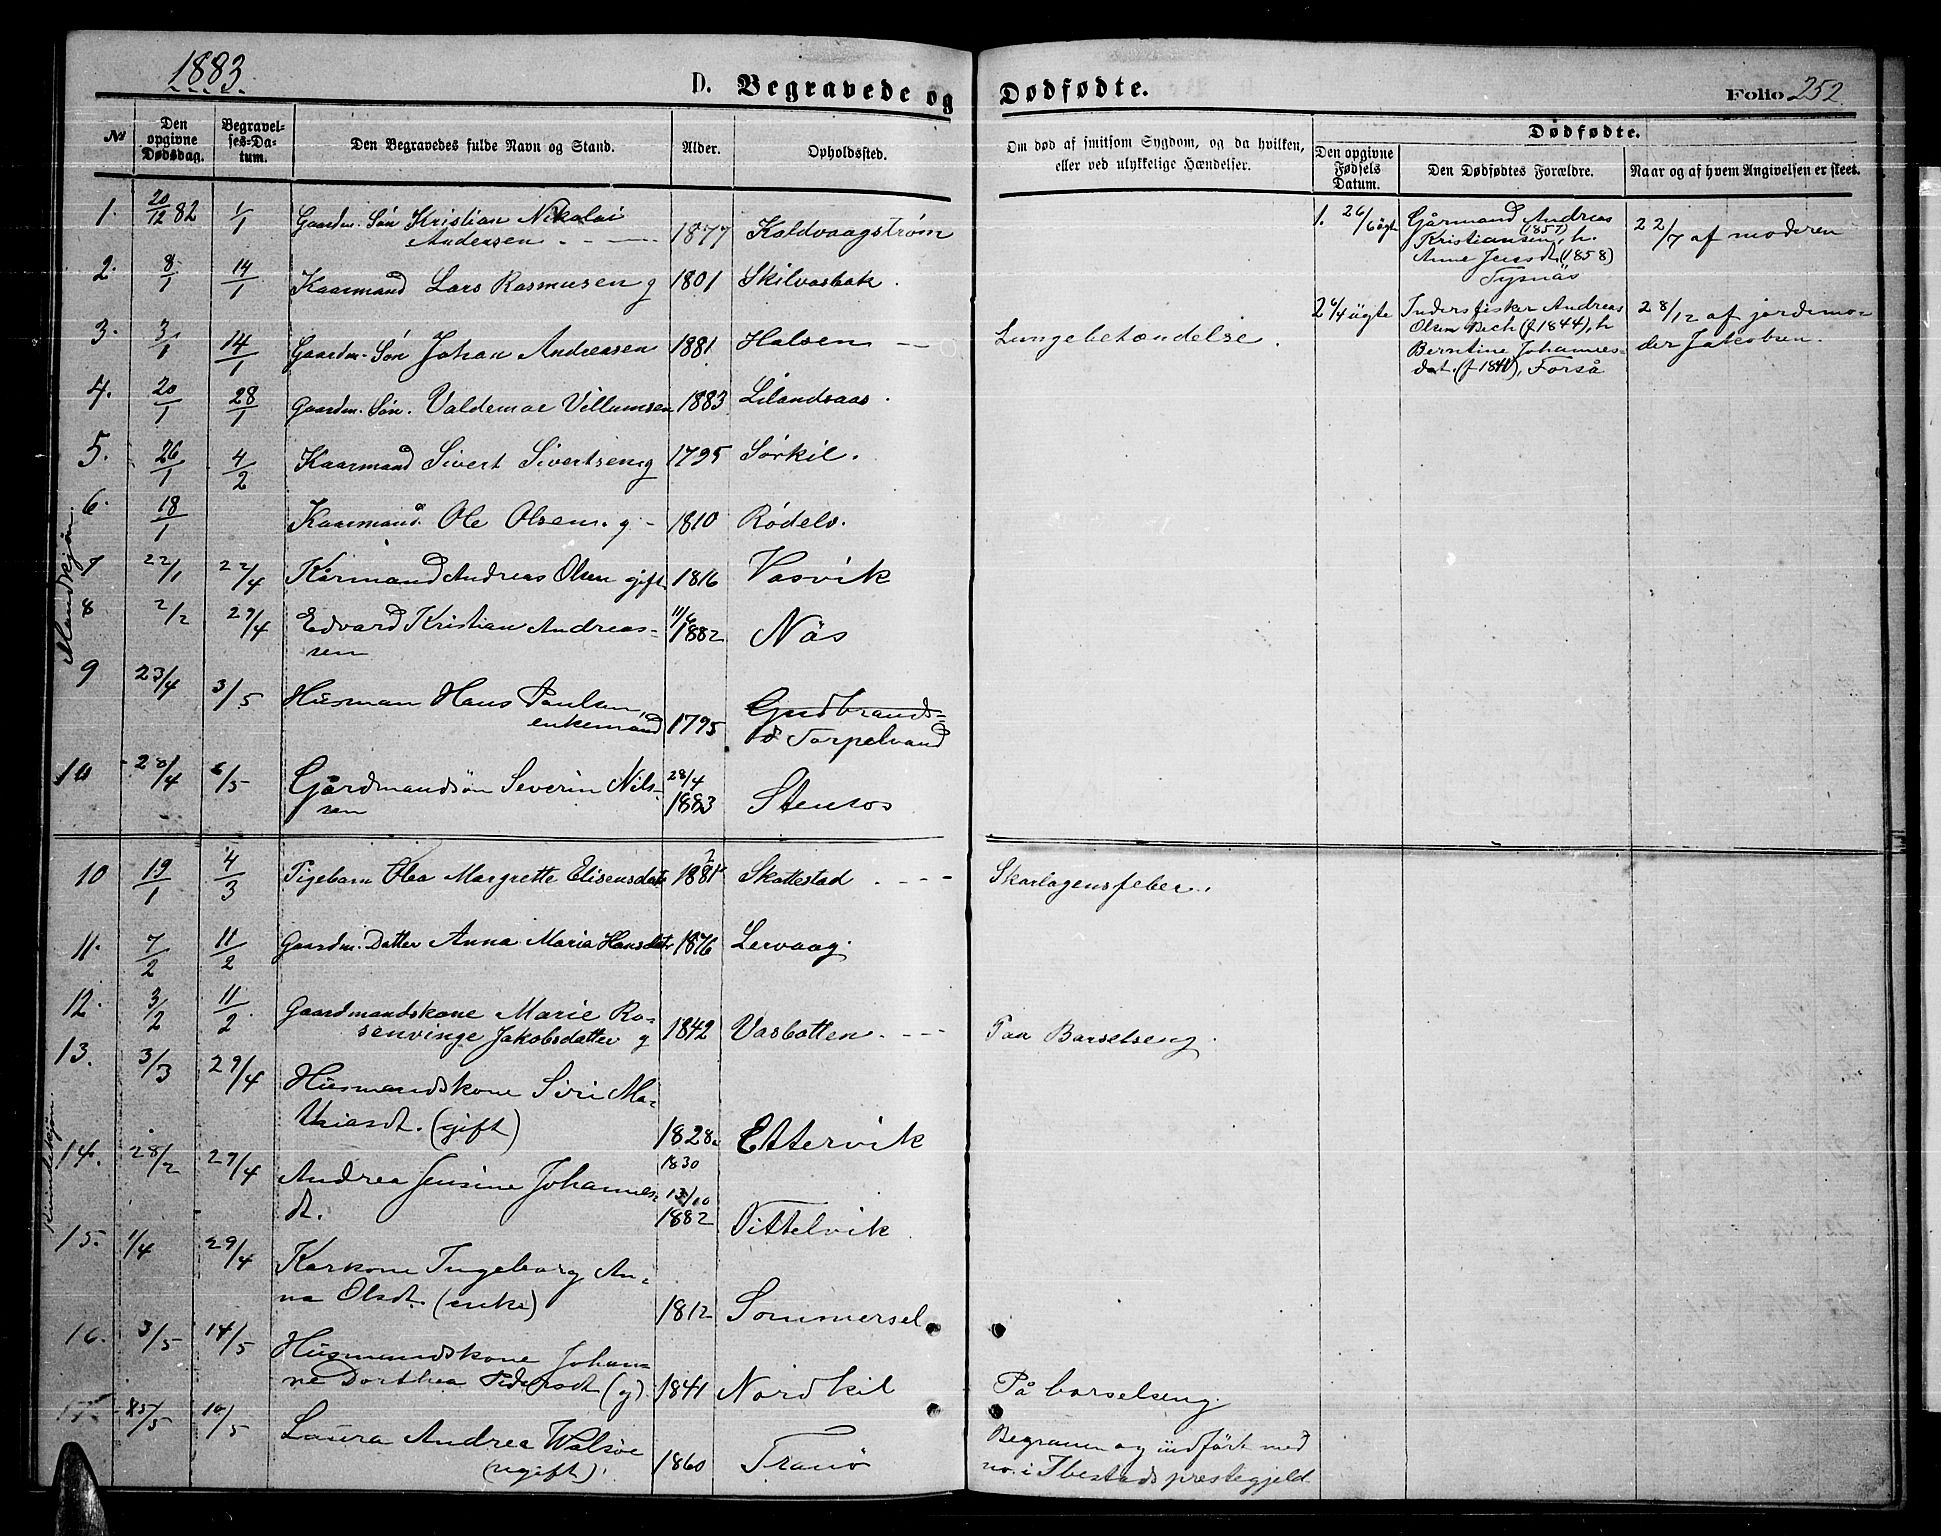 1883.
D. Begravede og Dødfødte.
Folio 252
№
Den opgivne Dødsdag.
Begravelses=Datum.
Den Begravedes fulde Navn og Stand.
Alder.
Opholdssted.
Om død af smitsom Sygdom, og da hvilken,
eller ved ulykkelige Hændelser.
Dødfødte.
Den opgivne Fødsels Datum.
Den Dødfødtes Forældre.
Naar og af hvem Angivelsen er skeet.
Mandkjøn.
1. 20/12 82 1/1 Gaardm. Søn Kristian Nikolai
Andersen 1877 Kaldvaagstrøm
2. 8/1 14/1 Kaarmand Lars Rasmusen g 1801 Skilvasbak.
3. 3/1 14/1 Gaardm. Søn Johan Andreasen 1881 Halsen — Lungebetændelse.
4. 20/1 28/1 Gaardm. Søn. Valdemar Villumsen 1883 Lilandsaas.
5. 26/1 4/2 Kaarmand Sivert Sivertsen g 1795 Sørkil.
6. 18/1 Kaarmand. Ole Olsen. g - 1810 Rødelv.
7 22/1 22/4 Kårmand Andreas Olsen gift 1816 Vasvik
8 2/2 29/4 Edvard Kristian Andreas-
sen 11/6 1882 Näs
9 23/4 3/5 Husman Hans Paulsen,
enkemand 1795 Gudbrands=
d Torpelvand
10 28/4 6/5 Gårdmandsön Severin Nils-
sen 28/4 1883 Stensos
1. 26/6 ögte Gårmand Andreas
(1857)
Kristiansen, h.
Anne Jensdt. (1858)
Tysnäs
22/7 af moderen
2 6/4 ögte Indersfisker Andreas
Olsen Bech (f 1844), h
Berntine Johannes-
dat. (f 1841), Forså
28/12 af jordemo-
der Jakobsen.
Kvindekjøn.
10 19/1 4/3 Pigebarn Olea Margrette Elisensdatr 1881 Skattestad - - - Skarlagensfeber.
11. 7/2 11/2 Gaardm. Datter Anna Maria Hansdatr 1876 Lervaag.
12. 3/2 11/2 Gaardmandskone Marie Ro-
senvinge Jakobsdatter g 1842 Vasbotten. - - - Paa Barselseng.
13. 3/3 29/4 Husmandskone Siri Ma-
thiasdt. (gift) 1828 1830 Ettervik
14. 28/2 29/4 Andrea Jensine Johannes-
dt. 13/10 1882 Tittelvik
15. 1/4 29/4 Karkone Ingeborg An-
na Olsdt. (enke) 1812 Sommersel
16. 3/5 14/5 Husmandskone Johan-
ne Dorthea Pedersdt (g). 1841 Nordkil På barselseng.
17. 5/5 10/5 Laura Andrea Walsöe
(ugift). 1860 Tranö Begraven og indført med
no. i Ibestads prestegjeld